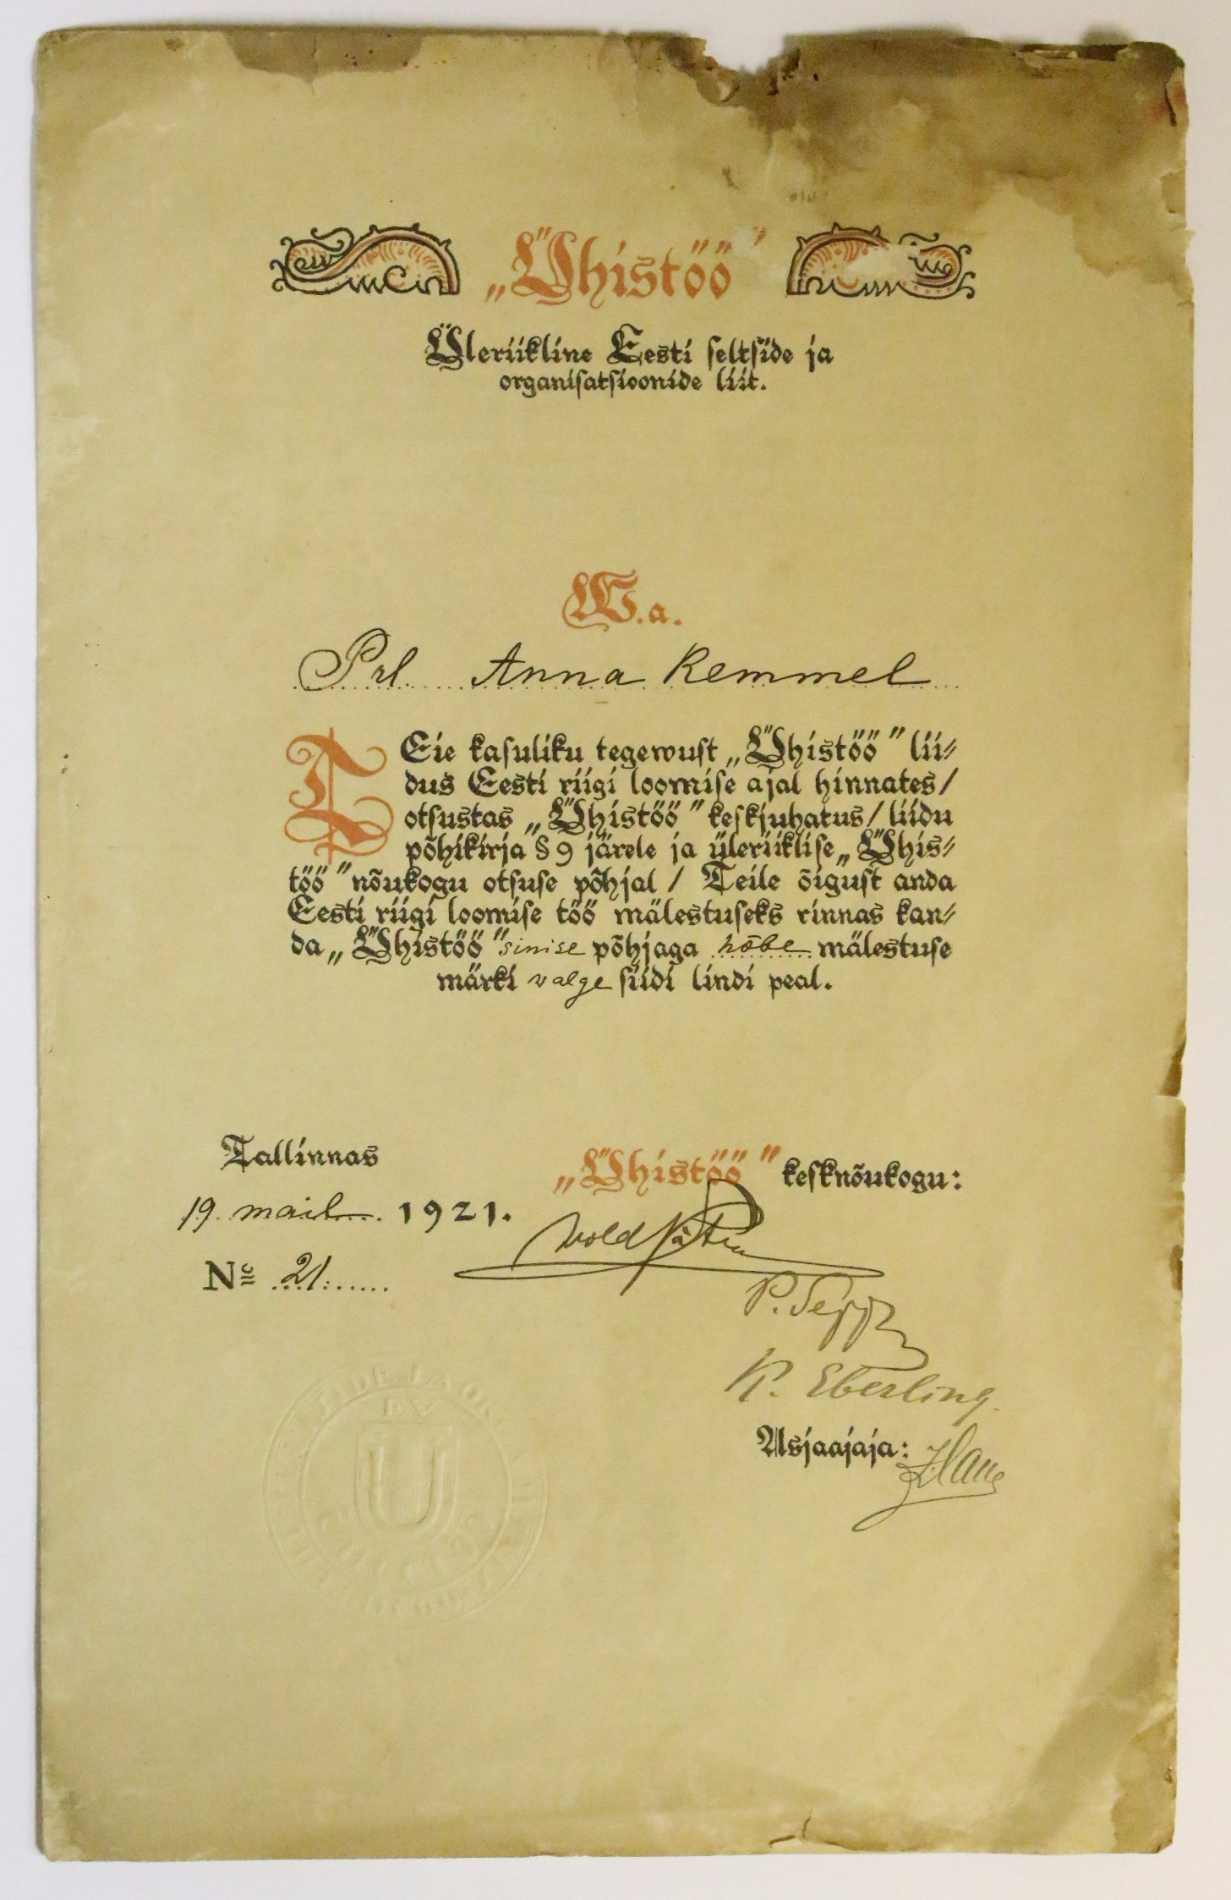 „Ühistöö"
Üleriikline Eesti seltside ja
organisatsioonide liit.
W.a.
Prl. Anna Remmel
TEie kasuliku tegewust „Ühistöö" lii-
dus Eesti riigi loomise ajal hinnates/
otsustas „Ühistöö" keskjuhatus/ liidu
põhikirja § 9 järele ja üleriiklise „Ühis-
töö" nõukogu otsuse põhjal/ Teile õigust anda
Eesti riigi loomise töö mälestuseks rinnas kan-
da „Ühistöö" sinise põhjaga hõbe mälestuse
märki valge siidi lindi peal.
Tallinnas
19. mail 1921.
No 21.
„Ühistöö" kesknõukogu:
P. Sepp
K. Eberling.
Asjaajaja:
U